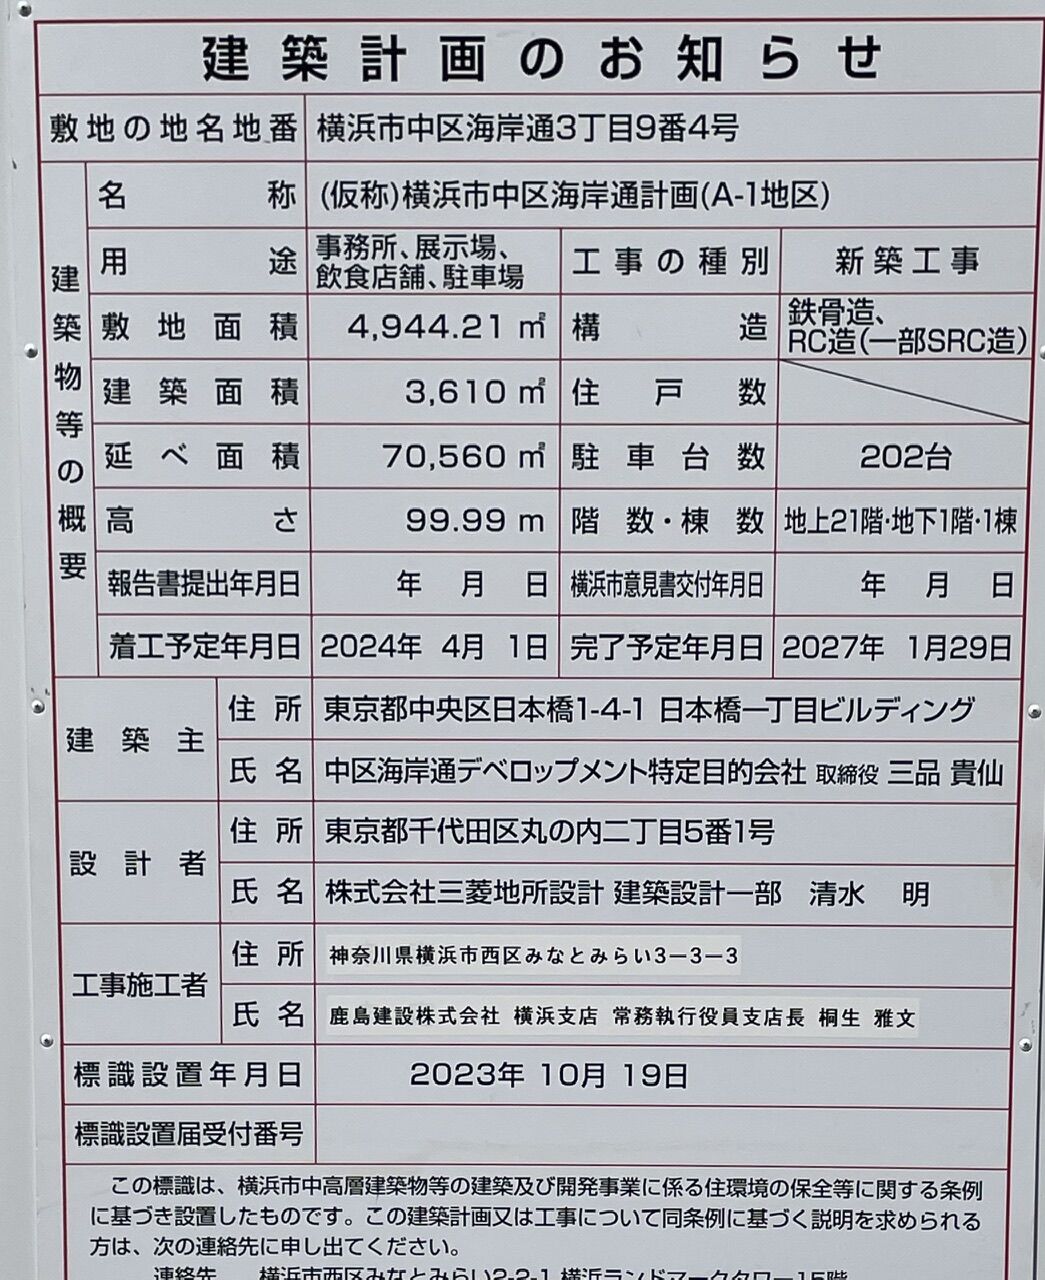 建築計画のお知らせ
敷地の地名地番 横浜市中区海岸通3丁目9番4号
建築物等の概要
名称 (仮称)横浜市中区海岸通計画(A-1地区)
用途 事務所、展示場、
飲食店舗、駐車場
工事の種別 新築工事
敷地面積 4,944.21 ㎡ 構造 鉄骨造、
RC造(一部SRC造)
建築面積 3,610 ㎡ 住戸数
延べ面積 70,560 ㎡ 駐車台数 202台
高さ 99.99 m 階数・棟数 地上21階・地下1階・1棟
報告書提出年月日 年 月 日 横浜市意見書交付年月日 年 月 日
着工予定年月日 2024年 4月 1日 完了予定年月日 2027年 1月29日
建築主
住所 東京都中央区日本橋1-4-1 日本橋一丁目ビルディング
氏名 中区海岸通デベロップメント特定目的会社 取締役 三品 貴仙
設計者
住所 東京都千代田区丸の内二丁目5番1号
氏名 株式会社三菱地所設計 建築設計一部 清水 明
工事施工者
住所 神奈川県横浜市西区みなとみらい3ー3ー3
氏名 鹿島建設株式会社 横浜支店 常務執行役員支店長 桐生 雅文
標識設置年月日 2023年 10月 19日
標識設置届受付番号
この標識は、横浜市中高層建築物等の建築及び開発事業に係る住環境の保全等に関する条例
に基づき設置したものです。この建築計画又は工事について同条例に基づく説明を求められる
方は、次の連絡先に申し出てください。
連絡先 横浜市西区みなとみらい2-2-1 横浜ランドマークタワー15階